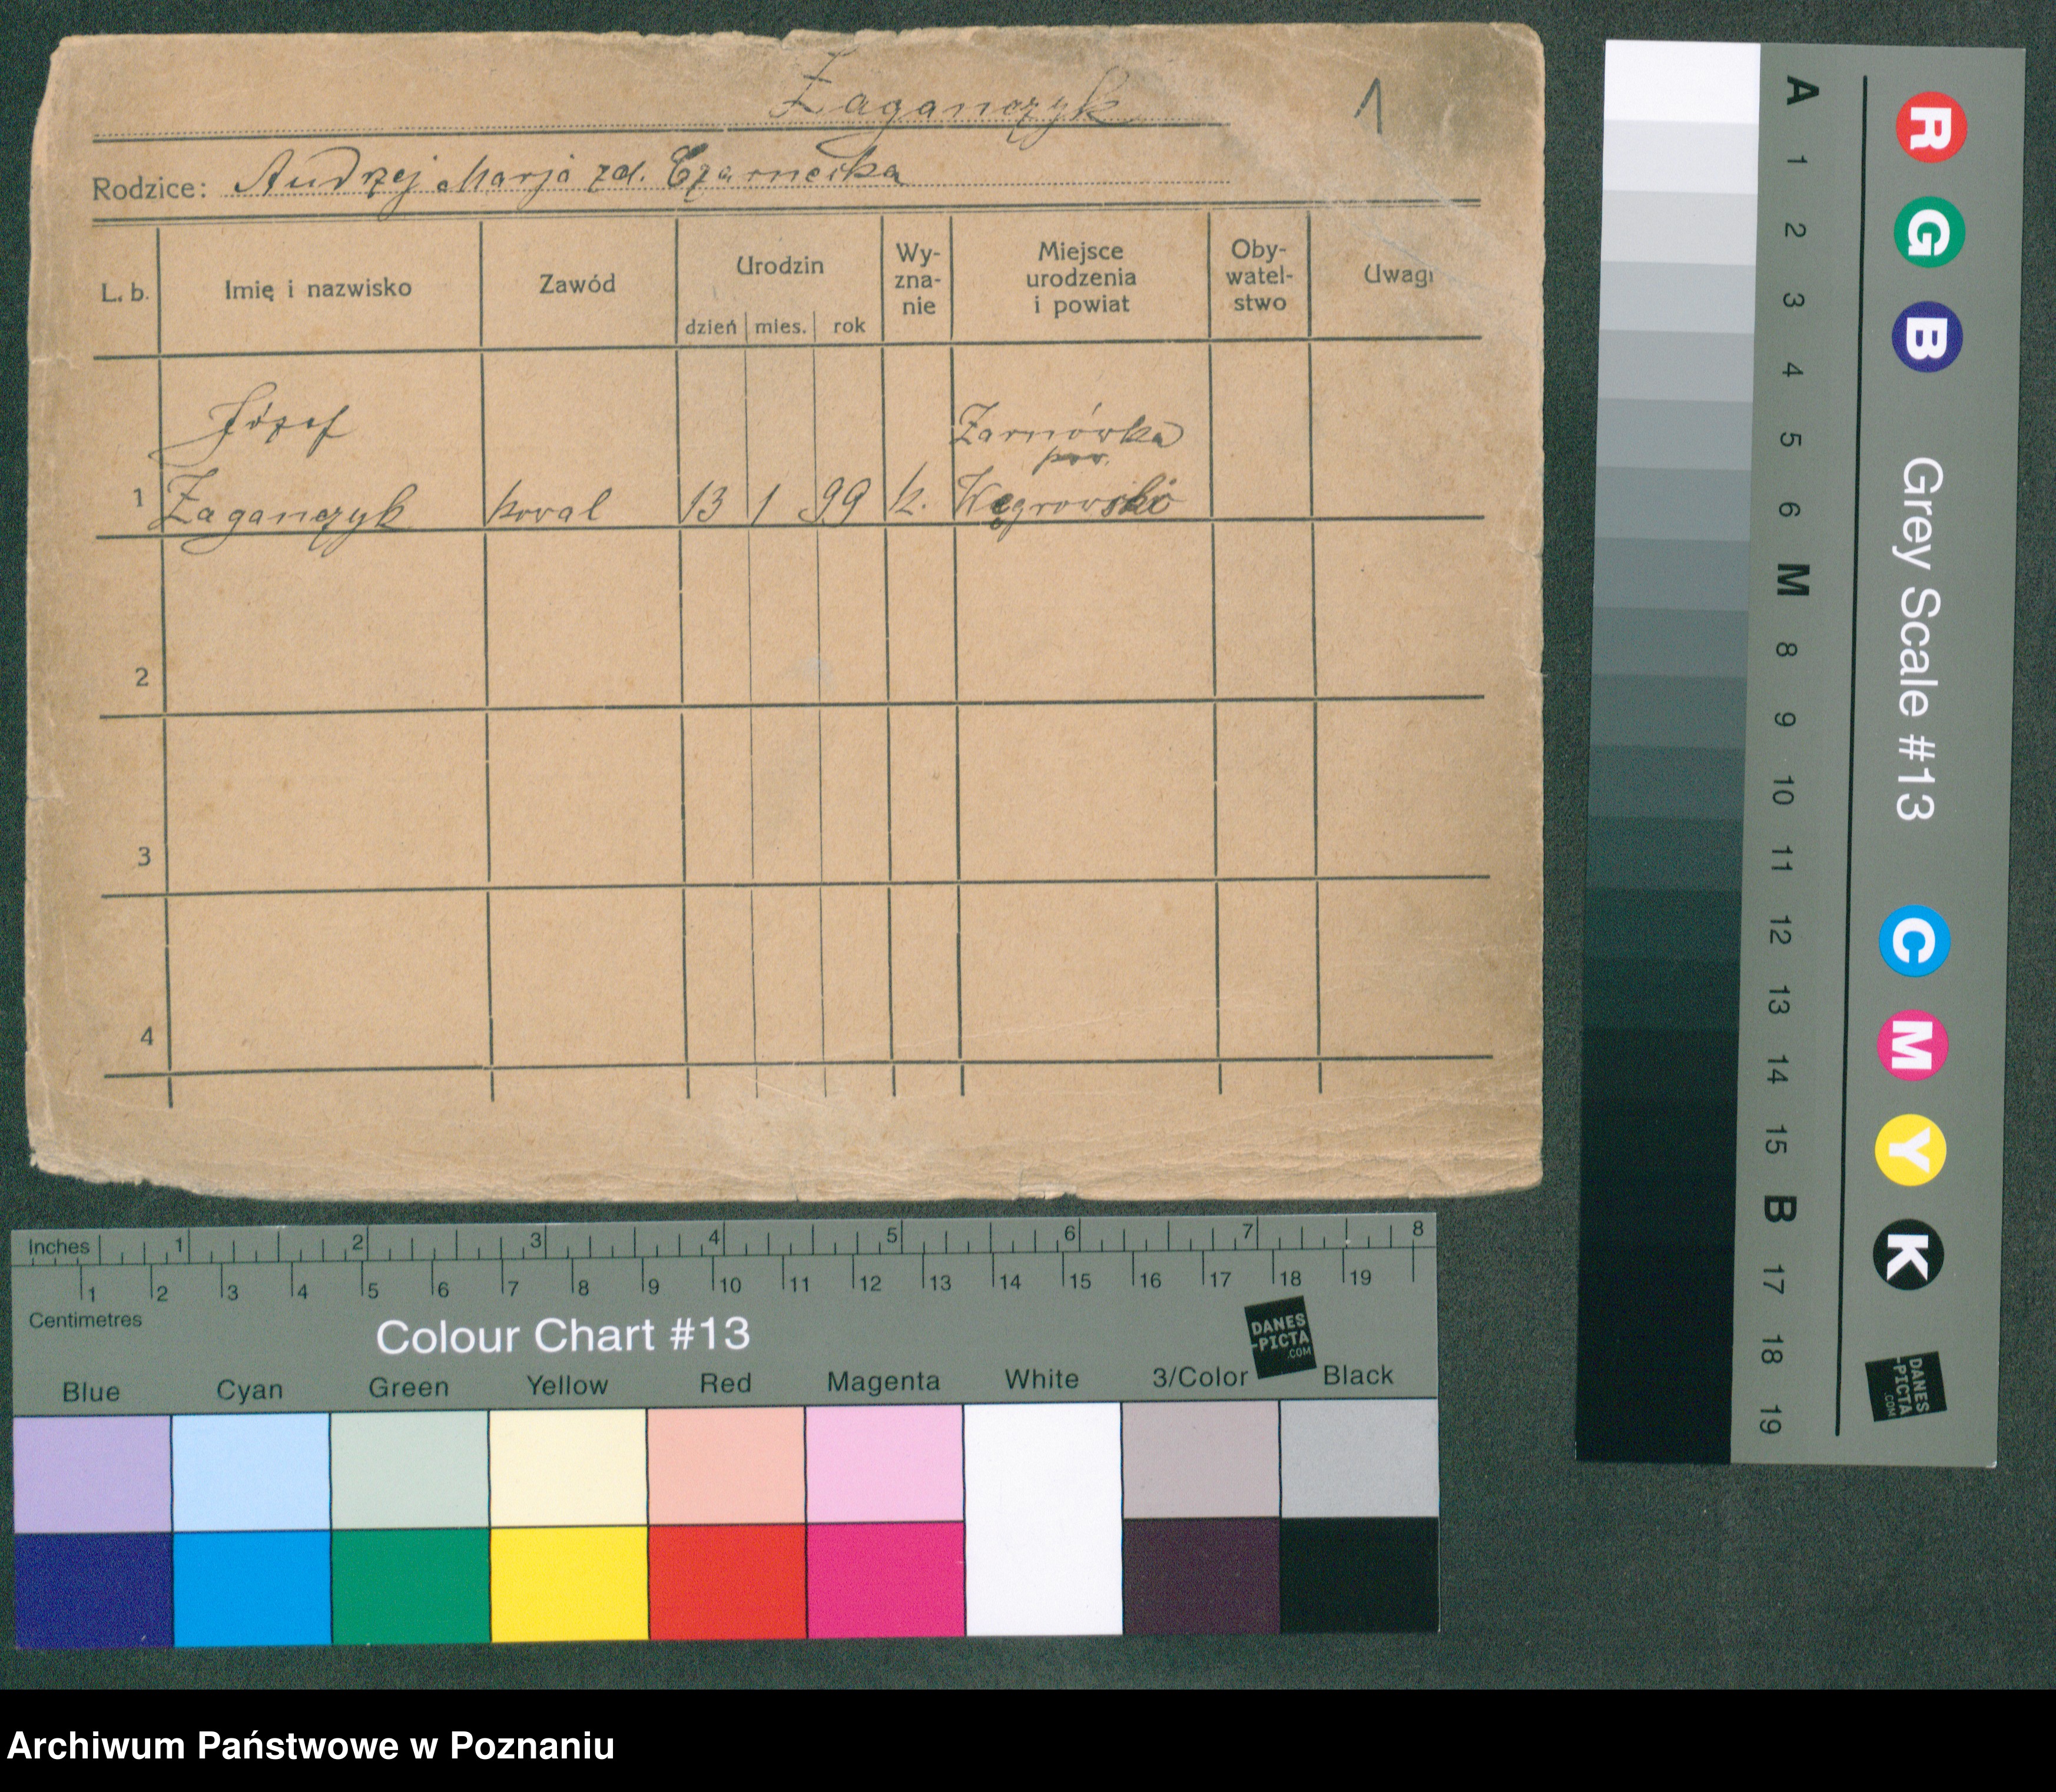 Żaganczyk
1
Rodzice: Andrzej Marja zd. Czarnecka
L. b. Imię i nazwisko Zawód Urodzin dzień mies. rok Wy-zna-nie Miejsce urodzenia i powiat Oby-watel-stwo Uwagi
Józef Żarnówka
pow.
1 Żaganczyk kowal 13 1 99 k. Węgrowski
2
3
4
Inches 1 2 3 4 5 6 7 8
1 2 3 4 5 6 7 8 9 10 11 12 13 14 15 16 17 18 19
Centimetres
Colour Chart #13
DANES
-PICTA
.COM
Blue Cyan Green Yellow Red Magenta White 3/Color Black
A 1 2 3 4 5 6 M 8 9 10 11 12 13 14 15 B 17 18 19
R G B Grey Scale #13 C M Y K
DANES
-PICTA
.COM
Archiwum Państwowe w Poznaniu